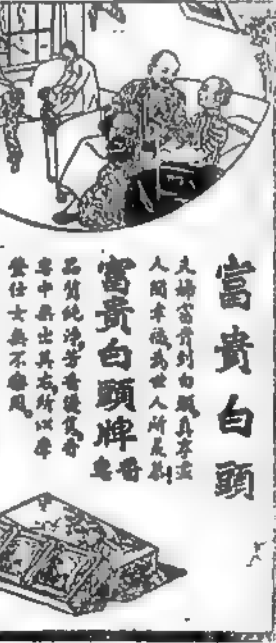 富貴白頭
夫婦富貴到白頭真享盡
人間幸福為世人所羡慕！
富貴白頭牌香皂
品質純淨芳香馥郁香
皂中無出其右所以摩
登仕士無不樂用。